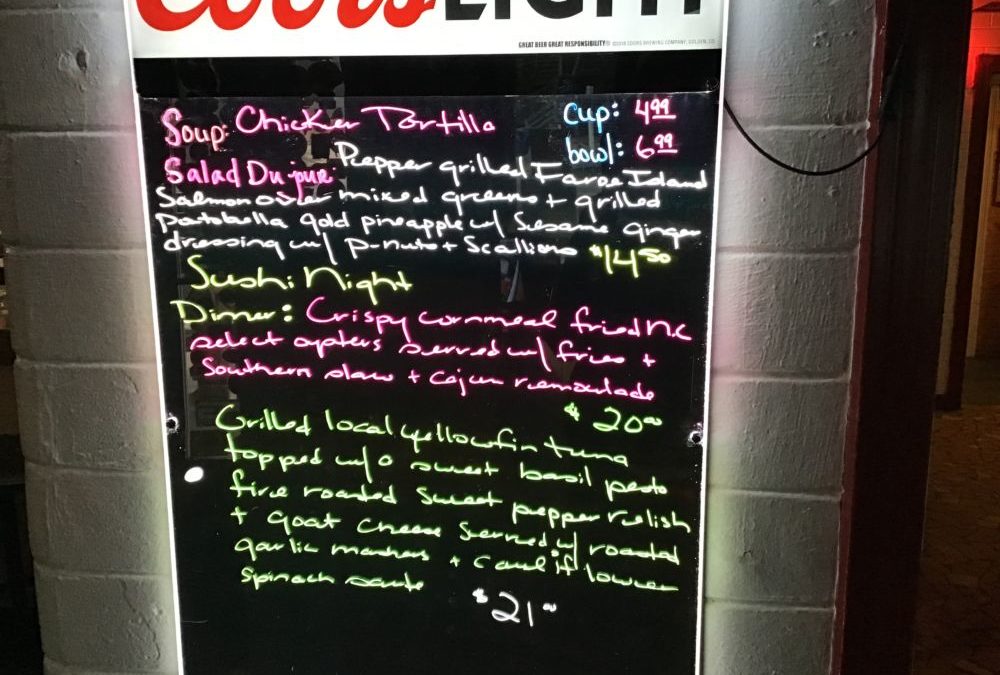 Coors LIGHT
GREAT BEER GREAT RESPONSIBILITY® ©2018 COORS BREWING COMPANY, GOLDEN, CO
Soup: Chicken Tortilla cup: 4.99
bowl: 6.99
Salad Du jour: Pepper grilled Faroe Island
Salmon over mixed greens + grilled
Portobella gold pineapple w/ Sesame ginger
dressing w/ p-nuts + Scallions $14.50
Sushi Night
Dinner: Crispy cornmeal fried N.C
select oysters served w/ fries +
Southern slaw + Cajun remoulade
$20.00
Grilled local yellowfin tuna
topped w/ a sweet basil pesto
fire roasted sweet pepper relish
+ goat cheese served w/ roasted
garlic mashers + cauliflower
spinach saute
$21.00